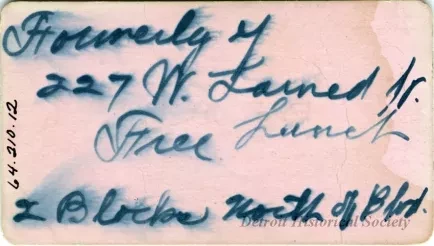 Formerly of
227 W. Larned St.
Free Lunch
2 Blocks North of Blvd.
Detroit Historical Society
64.210.12